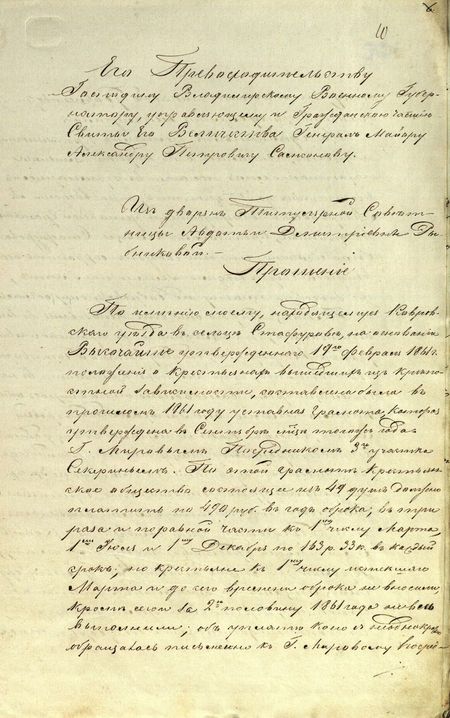 10
Его Превосходительству
Господину Владимирскому Военному Губер-
натору, управляющему и Гражданскою частью
Свиты Его Величества Генералъ Майору
Александру Петровичу Самсонову.
Изъ дворянъ Титулярной Совѣт-
ницы Авдотьи Дмитріевны
Прошеніе
По имѣнію моему, находящемуся Ковров-
скаго уѣзда въ сельцѣ на основаніи
Высочайше утвержденнаго 19го Февраля 1861 г.
положенія о крестьянахъ вышедшихъ изъ крѣпо-
стной зависимости, составлена была въ
прошломъ 1861 году уставная грамота, которая
утверждена въ Сентябрѣ мѣц тогожъ года
Г. Мировымъ Посредникомъ 3го участка
Секеринымъ. По этой грамотѣ крестьян-
ское общество состоящее изъ 49 душъ должно
платить по 490 руб. въ годъ оброка, въ три
раза и поравной части къ 1му числу Марта,
1му Іюля и 1му Декабря по 163 р. 33 к. въ каждый
срокъ; но крестьяне къ 1му числу
Марта и до сего времени оброка не вносили,
кромѣ сего за 2ю половину 1861 года не весь
выполнили; объ уплатѣ коего я неоднократно
обращалась письменно къ Г. Мировому Посред-